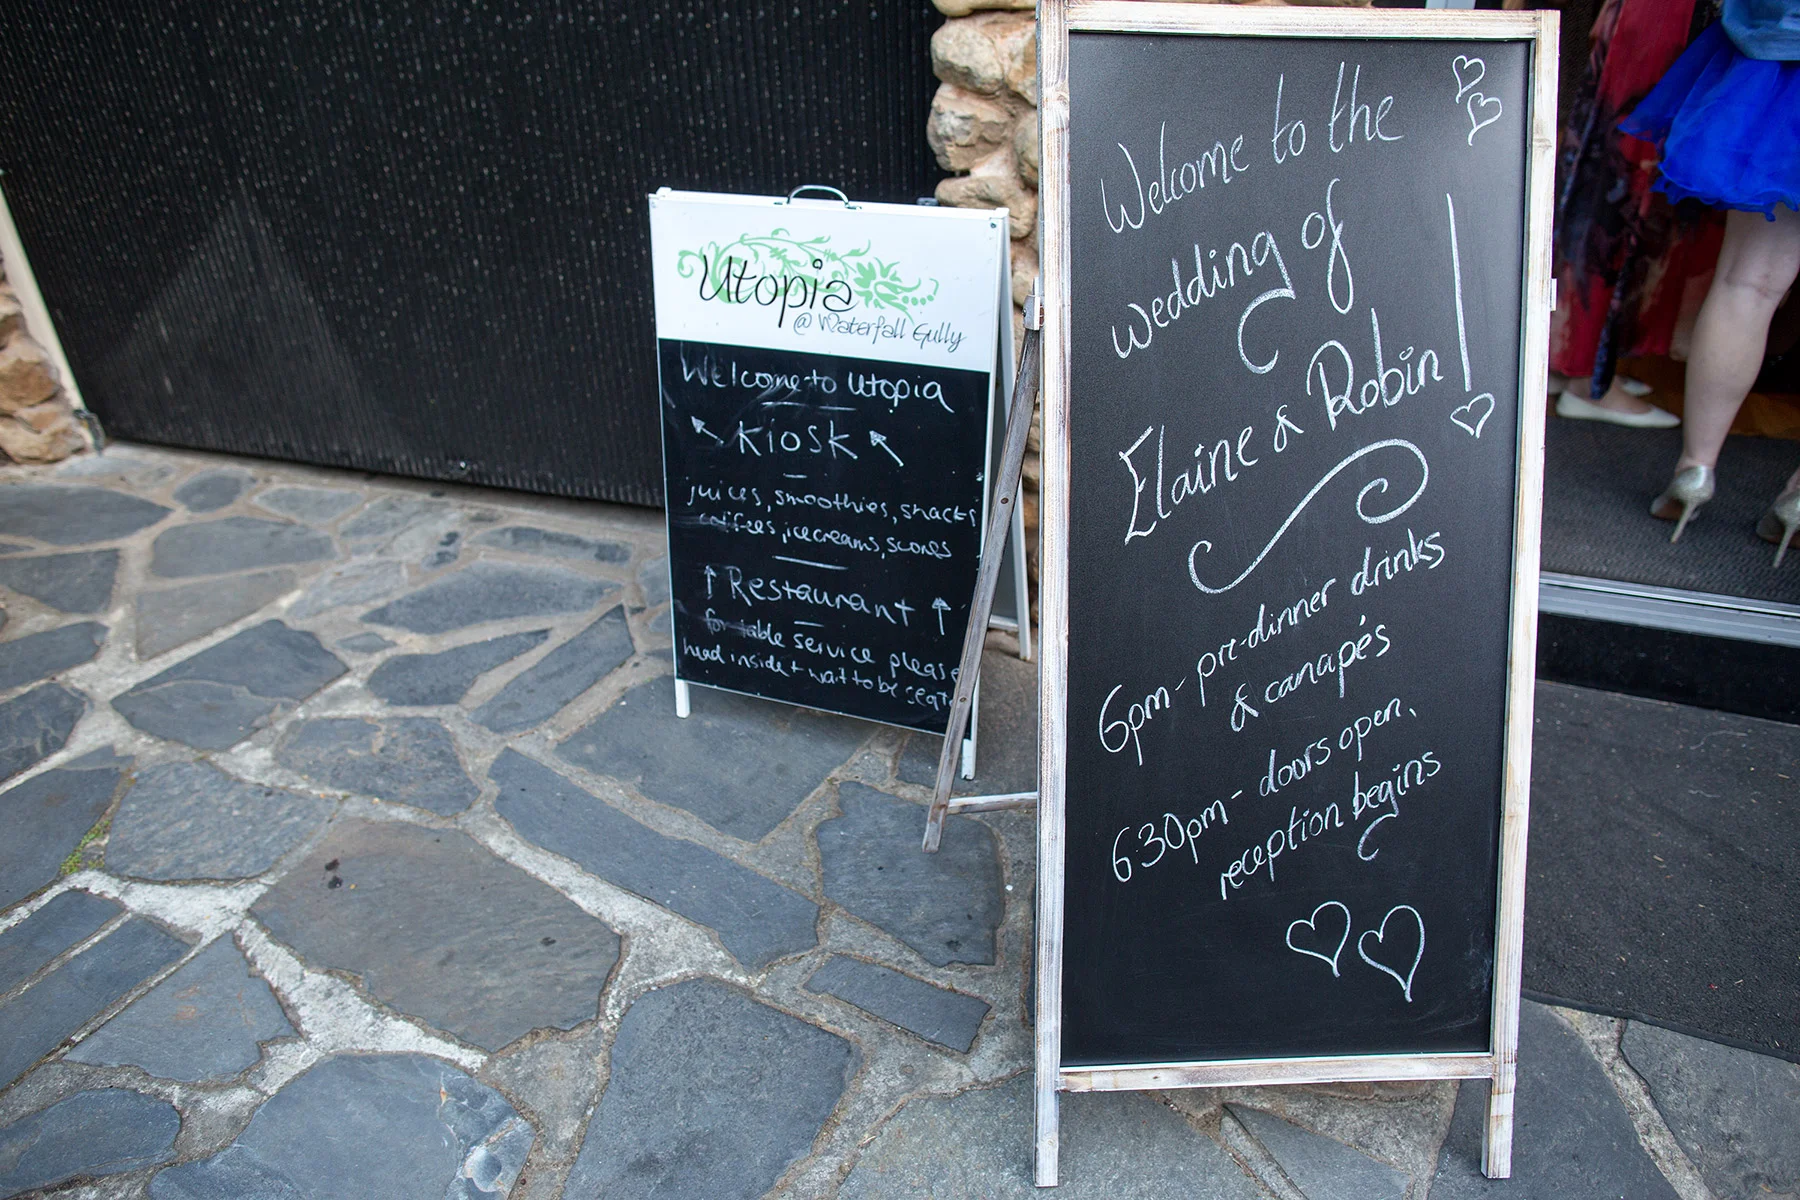 Utopia
@ Waterfall Gully
Welcome to Utopia
Kiosk
juices, smoothies, snacks
coffees, icecreams, scones
Restaurant
for table service please
head inside + wait to be
Welcome to the
wedding of
Elaine & Robin!
6pm - pre-dinner drinks
& canapés
6:30pm - doors open,
reception begins